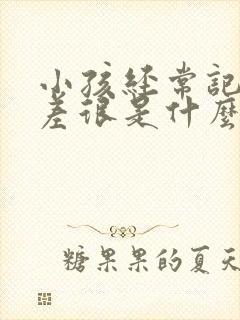 小孩经常記
差很是什麼
糖果果的夏天